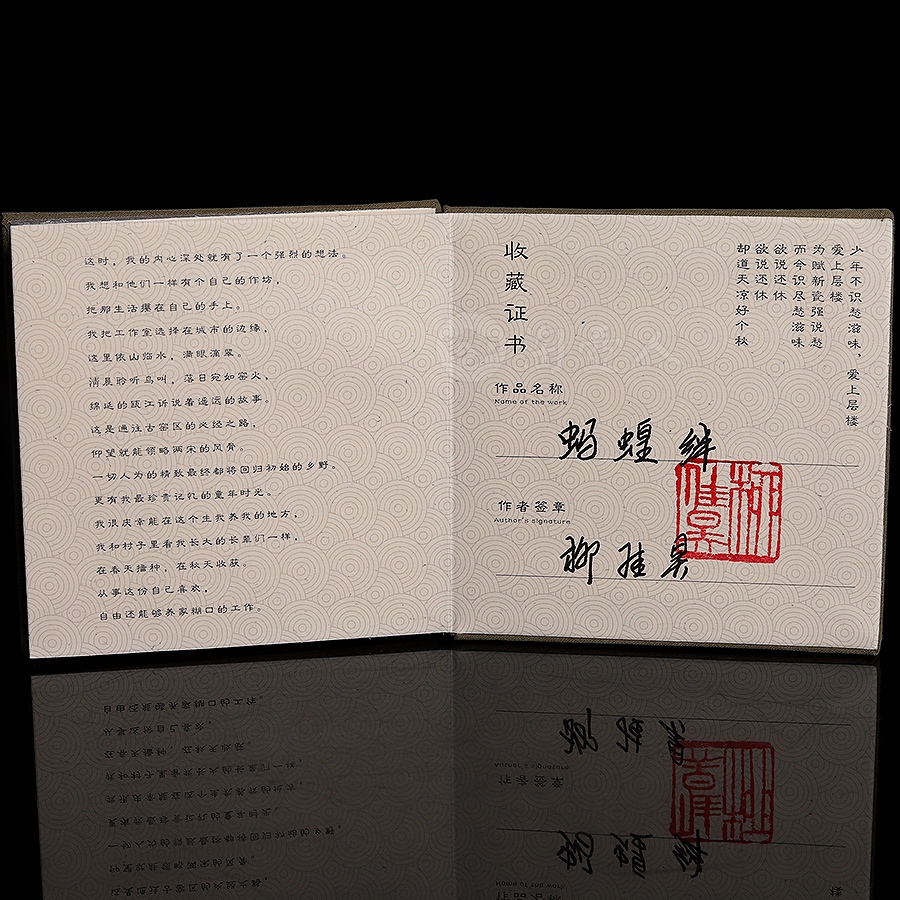 这时，我的内心深处就有了一个强烈的想法。
我想和他们一样有个自己的作坊，
把那生活摸在自己的手上。
我把工作室选择在城市的边缘，
这里依山临水，满眼滴翠。
清晨聆听鸟叫，落日宛如窑火，
绵延的瓯江诉说着遥远的故事。
这是通往古窑区的必经之路，
仰望就能领略两宋的风骨。
一切人为的精致最终都将回归初始的乡野。
更有我最珍贵记忆的童年时光。
我很庆幸能在这个生我养我的地方，
我和村子里看我长大的长辈们一样，
在春天播种，在秋天收获。
从事这份自己喜欢，
自由还能够养家糊口的工作。
少年不识愁滋味，爱上层楼
爱上层楼
为赋新瓷强说愁
而今识尽愁滋味
欲说还休
欲说还休
却道天凉好个秋
收藏证书
作品名称
Name of the work
蚂蝗绊
作者签章
Author's signature
柳